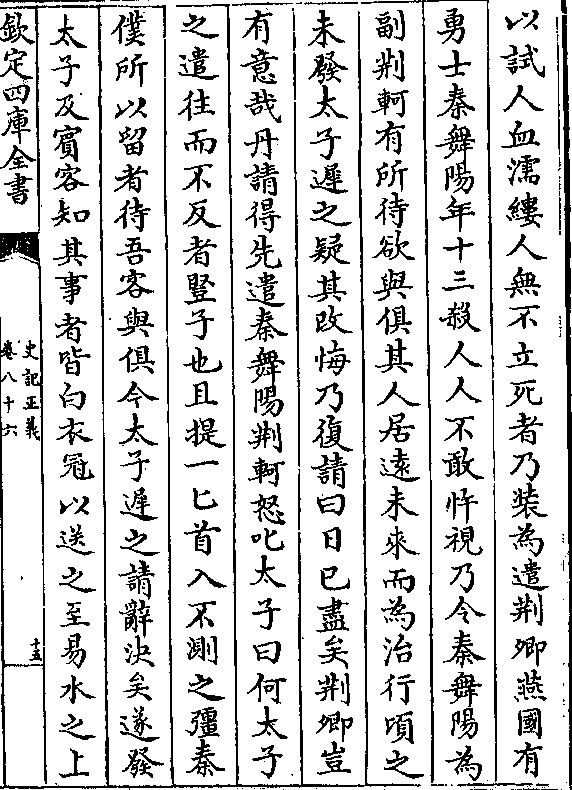 以試人血濡縷人無不立死者乃裝為遣荆卿燕國有
勇士秦舞陽年十三殺人人不敢忤視乃令秦舞陽為
副荆軻有所待欲與俱其人居遠未來而為治行頃之
未發太子遲之疑其改悔乃復請曰日已盡矣荆卿豈
有意哉丹請得先遣秦舞陽荆軻怒叱太子曰何太子
之遣往而不反者豎子也且提一匕首入不測之彊秦
僕所以留者待吾客與俱今太子遲之請辭決矣遂發
太子及賓客知其事者皆白衣冠以送之至易水之上
欽定四庫全書
史記正義
卷八十六
十五